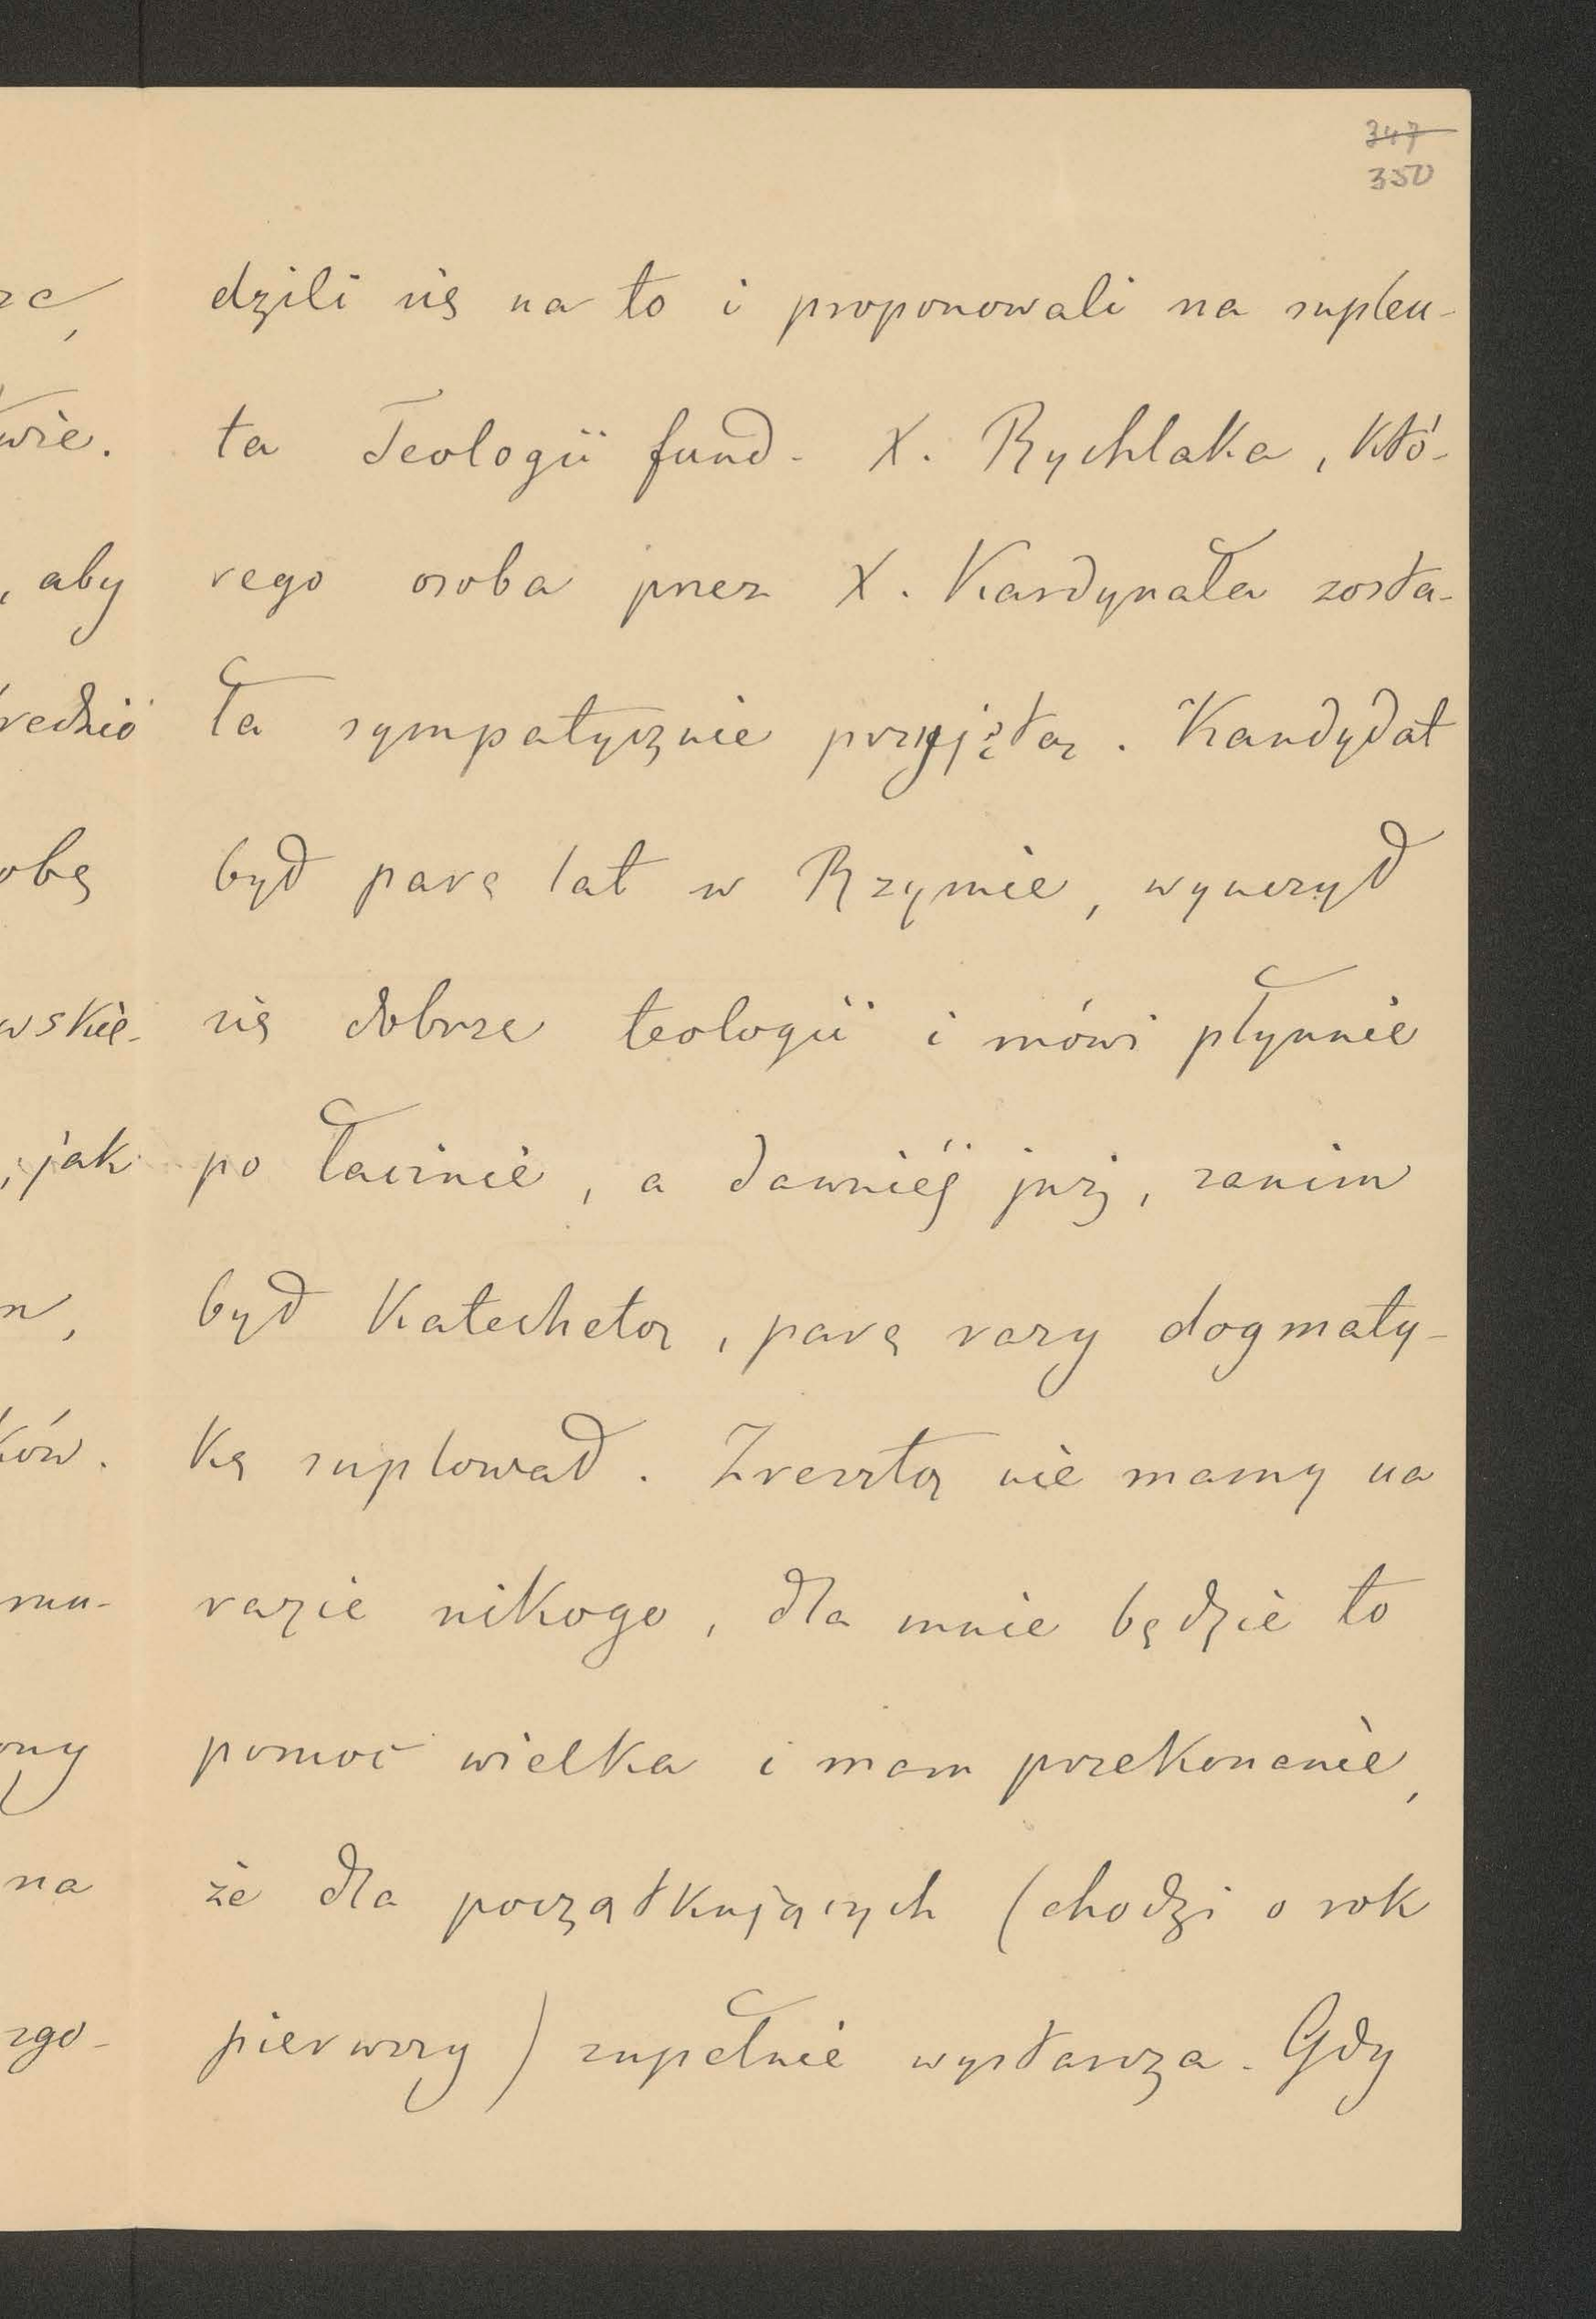 347
350
dzili się na to i proponowali na suplen-
ta Teologii fund. X. Rychlaka, któ-
rego osoba przez X. Kardynała zosta-
ła sympatycznie przyjętą. Kandydat
był parę lat w Rzymie, wyuczył
się dobrze teologii i mówi płynnie
po łacinie, a dawniéj już, zanim
był Katechetą, parę razy dogmaty-
kę suplował. Zresztą nie mamy na
razie nikogo, dla mnie będzie to
pomoc wielka i mam przekonanie,
że dla początkujących (chodzi o rok
pierwszy) zupełnie wystarcza. Gdy
, aby
obę
, jak
ków.
na
zgo-